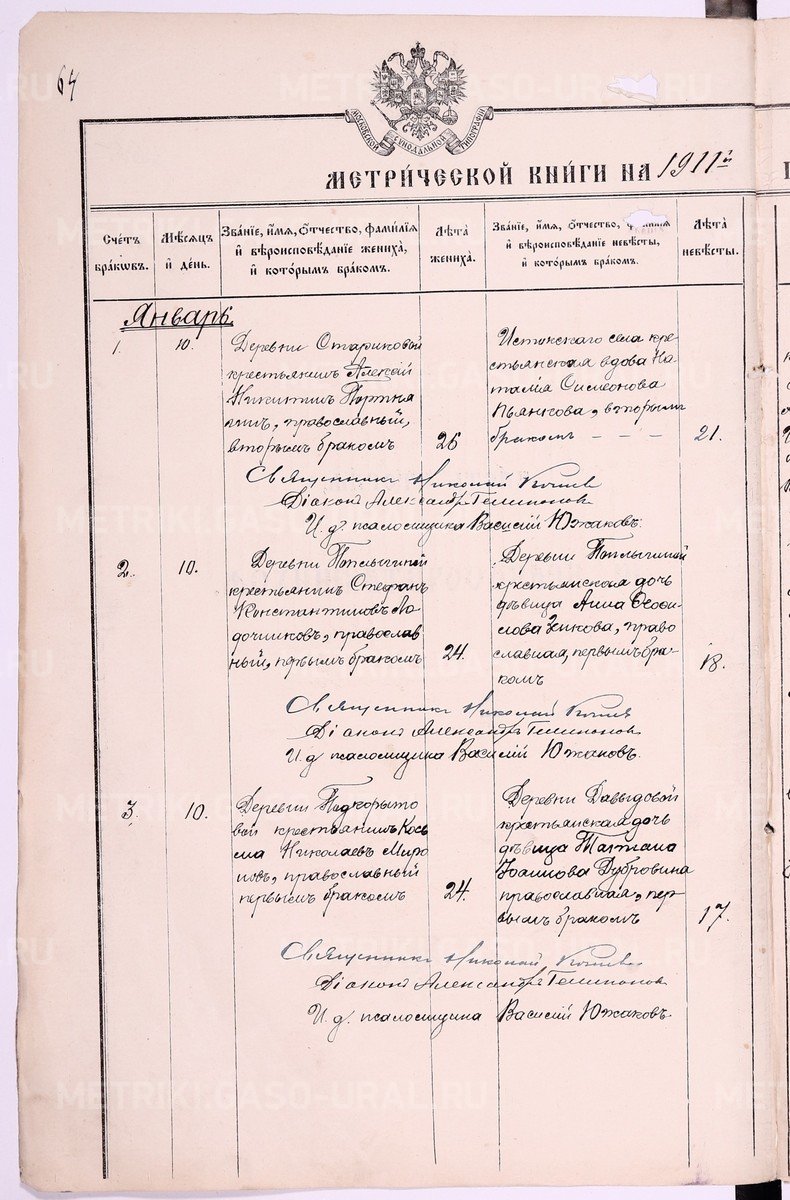 64
МОСКОВСКОЙ СѴНОДАЛЬНОЙ ТИПОГРАФІИ
МЕТРИ́ЧЕСКОЙ КНИ́ГИ НА 1911й
Сче́тъ бра́кωвъ.
Мѣ́сяцъ и҆ де́нь.
Зва́нїе, и҆́мя, ѻ҆́тчество, фами́лїя и҆ вѣроисповѣ́данїе жениха̀, и҆ кото́рымъ бра́комъ.
Лѣ́та жениха̀.
Зва́нїе, и҆́мя, ѻ҆́тчество, и҆ вѣроисповѣ́данїе невѣ́сты, и҆ кото́рымъ бра́комъ.
Лѣ́та невѣ́сты.
Январь.
1.
10.
Деревни Стариковой
крестьянинъ Алексѣй
Никитинъ
православный,
вторымъ бракомъ
26
Истокскаго села кре-
стьянская вдова На
талія Симеонова
Пьянкова, вторымъ
бракомъ – – –
21.
Священникъ Николай
Діаконъ Александръ
И. д. псаломщика Василій Южаковъ.
2.
10.
Деревни
крестьянинъ Стефанъ
Константиновъ Ло
дочниковъ, православ
ный, первымъ бракомъ
24.
Деревни
крестьянская дочь
дѣвица Анна
Зыкова, право
славная, первымъ бра-
комъ
18.
Священникъ Николай
Діаконъ Александръ
И. д. псаломщика Василій Южаковъ.
3.
10.
Деревни Подкорыто
вой крестьянинъ Козь
ма Николаевъ Миро
новъ, православный
первымъ бракомъ
24.
Деревни Давыдовой
крестьянская дочь
дѣвица Татіана
Іоакимова Дубровина
православная, пер
вымъ бракомъ
17.
Священникъ Николай
Діаконъ Александръ
И. д. псаломщика Василій Южаковъ.
METRIKI.GASO-URAL.RU